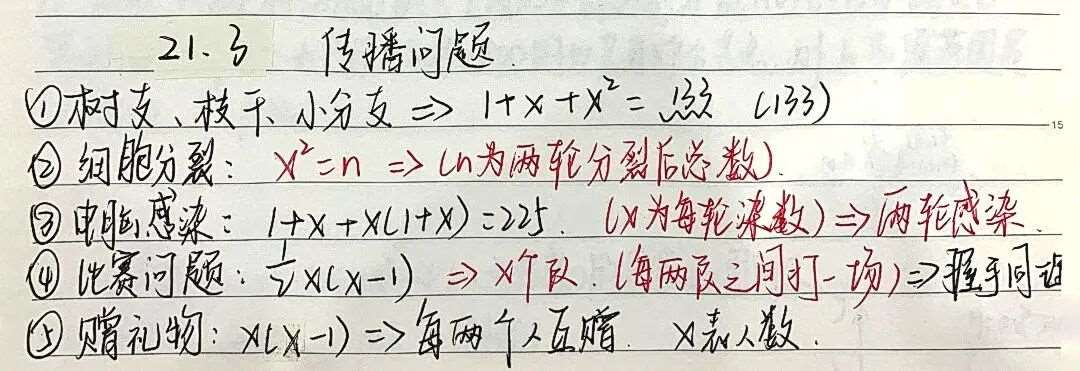 21.3 传播问题.
①树支、枝干、小分支 => 1+x+x²= (133)
② 细胞分裂: x²=n => (n为两轮分裂后总数).
③ 电脑感染: 1+x+x(1+x)=225. (x为每轮染数) => 两轮感染.
④ 比赛问题: ½x(x-1) => x个队. (每两队之间打一场) => 握手问
⑤ 赠礼物: x(x-1) => 每两个人互赠. x表人数.
15